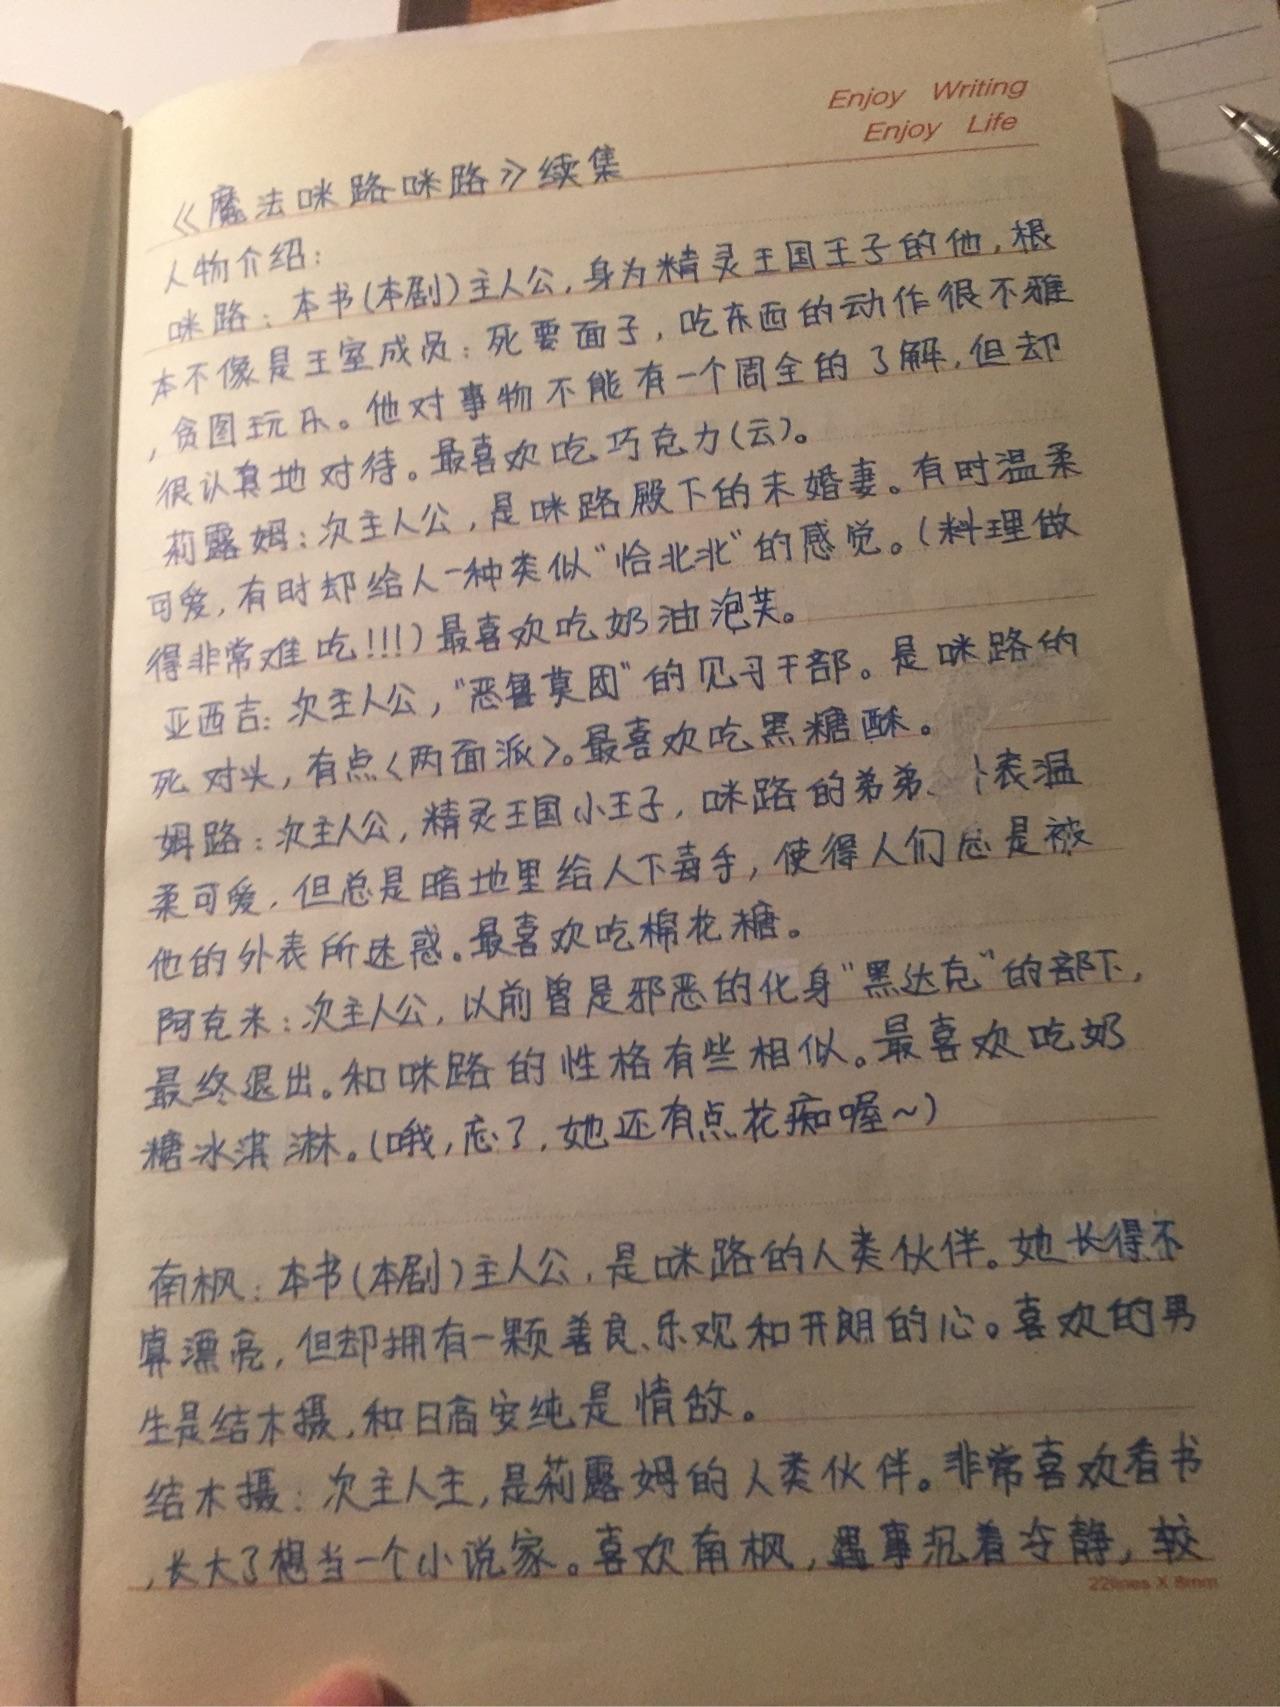 Enjoy Writing
Enjoy Life
《魔法咪路咪路》续集
人物介绍：
咪路：本书(本剧)主人公，身为精灵王国王子的他，根
本不像是王室成员：死要面子，吃东西的动作很不雅
，贪图玩乐。他对事物不能有一个周全的了解，但却
很认真地对待。最喜欢吃巧克力(云)。
莉露姆：次主人公，是咪路殿下的未婚妻。有时温柔
可爱，有时却给人一种类似“恰北北”的感觉。(料理做
得非常难吃!!!)最喜欢吃奶油泡芙。
亚西吉：次主人公，“恶鲁莫团”的见习干部。是咪路的
死对头，有点<两面派>。最喜欢吃黑糖酥。
姆路：次主人公，精灵王国小王子，咪路的弟弟、表温
柔可爱，但总是暗地里给人下毒手，使得人们总是被
他的外表所迷惑。最喜欢吃棉花糖。
阿克米：次主人公，以前曾是邪恶的化身“黑达克”的部下，
最终退出。和咪路的性格有些相似。最喜欢吃奶
糖冰淇淋。(哦，忘了，她还有点花痴喔~)
南枫：本书(本剧)主人公，是咪路的人类伙伴。她长得不
算漂亮，但却拥有一颗善良、乐观和开朗的心。喜欢的男
生是结木摄，和日高安纯是情敌。
结木摄：次主人主，是莉露姆的人类伙伴。非常喜欢看书
，长大了想当一个小说家。喜欢南枫，遇事沉着冷静，较
22lines X 8mm